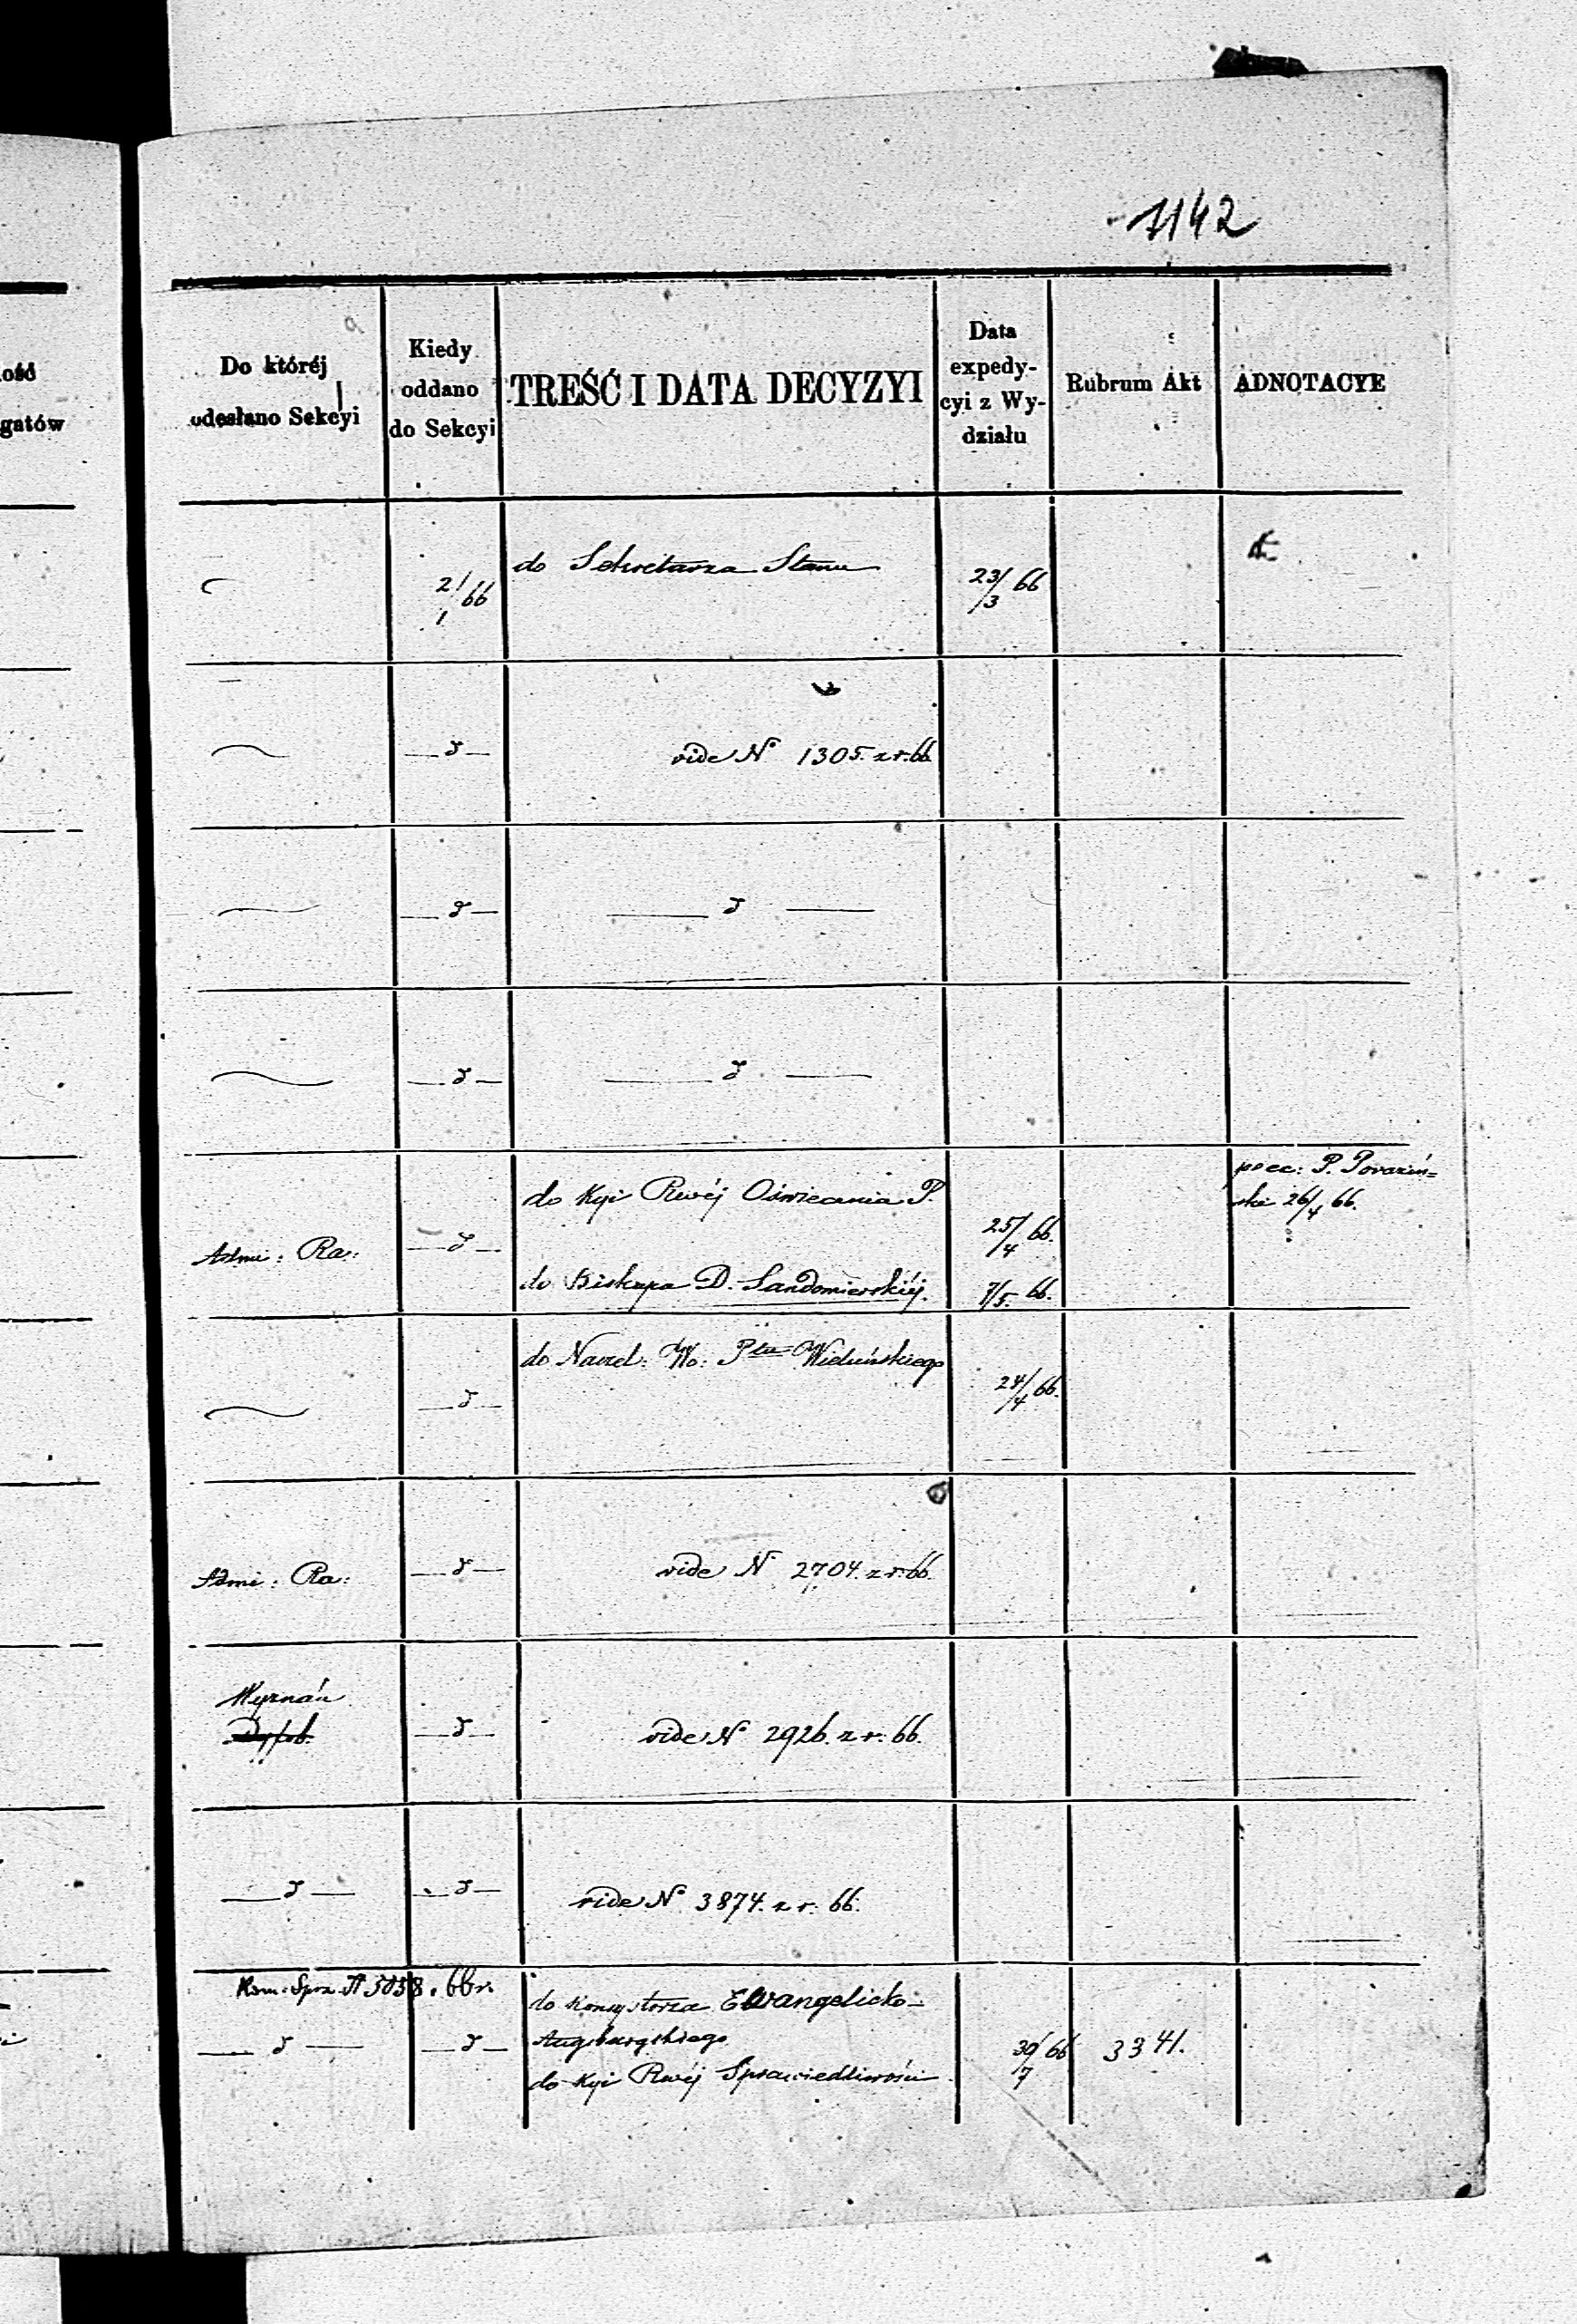 1142
ość
gatów
Do któréj
odesłano Sekcyi
Kiedy
oddano
do Sekcyi
TREŚĆ I DATA DECYZYI
Data
expedy-
cyi z Wy-
działu
Rubrum Akt
ADNOTACYE
2/1 66
do Sekretarza Stanu
23/3 66
d
vide No 1305. z r. 66
d
d
d
d
Admi: Ra:
d
do Kyi Rwéj Oświecenia P.
25/4 66.
do Biskupa D. Sandomierskiéj.
7/5. 66.
26/4 66.
d
do Naczel: Wo: Ptu Wieluńskiego
24/4 66.
Admi: Ra:
d
vide N 2704. z r. 66.
Wyznań
d
vide No 2926. z r. 66.
d
d
vide No 3874. z r. 66.
66 r.
d
d
do Konsystorza Ewangelicko-
Augsburgskiego
do Kyi Rwéj Sprawiedliwości
30/7 66
3341.